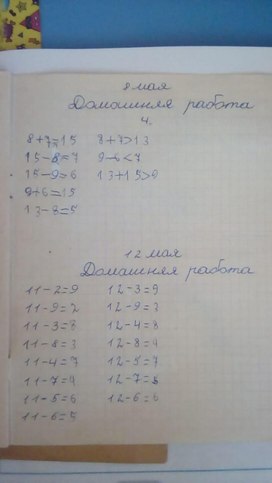 8 мая
Домашняя работа
4.
8+7=15 8+7>13
15-8=7 9-6<7
15-9=6 13+15>9
9+6=15
13-8=5
12 мая
Домашняя работа
11-2=9 12-3=9
11-9=2 12-9=3
11-3=8 12-4=8
11-8=3 12-8=4
11-4=7 12-5=7
11-7=4 12-7=5
11-5=6 12-6=6
11-6=5